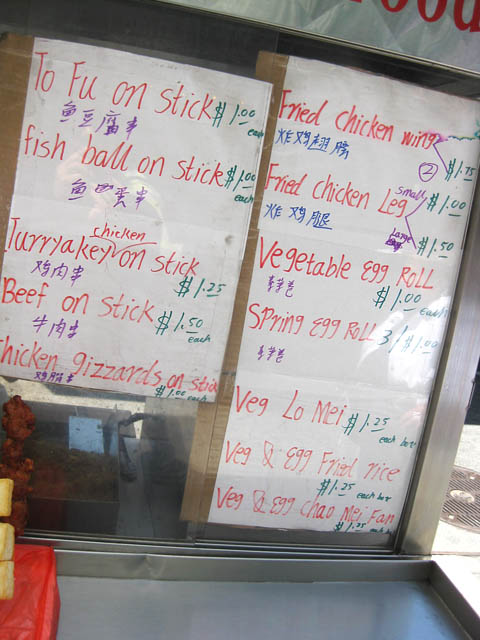 ood
To Fu on stick $1.00 each
鱼豆腐串
fish ball on stick $1.00 each
鱼蛋串
chicken
Turryakey on stick $1.25
鸡肉串
Beef on stick $1.50 each
牛肉串
Chicken gizzards on stick
$1.00 each
Fried chicken wing
炸鸡翅膀
② $1.75
Fried chicken Leg small $1.00
炸鸡腿 Large $1.50
Vegetable Egg RoLL
$1.00 each
Spring Egg RoLL 3/$1.00
Veg Lo Mei $1.25 each box
Veg & Egg Fried rice
$1.25 each box
Veg & Egg chao Mei Fan
$1.25 each